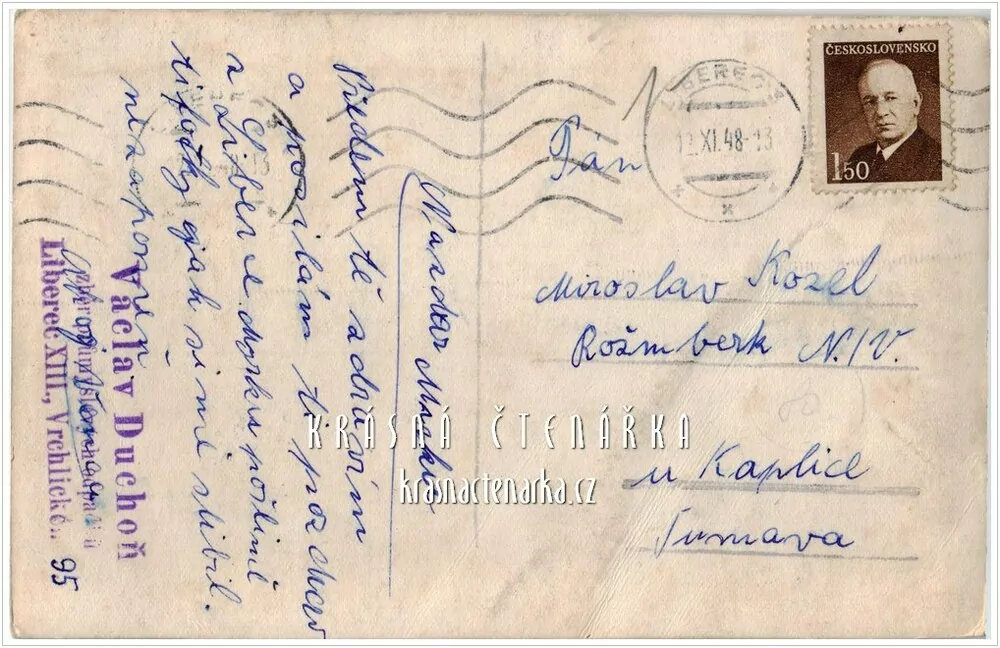 ČESKOSLOVENSKO
1 50
LIBEREC 2
12.XI.48-13
Pán
Miroslav Kozel
Rožmberk N./V.
u Kaplice
Šumava
Nazdar Mirku
Předem tě zdravím
a posílám ti pozdrav
z Liberce
ti fotky, jak si mě slíbil.
nezapomeň
Václav Duchoň
Liberec XIII., Vrchlického 95
KRÁSNÁ ČTENÁŘKA
krasnactenarka.cz